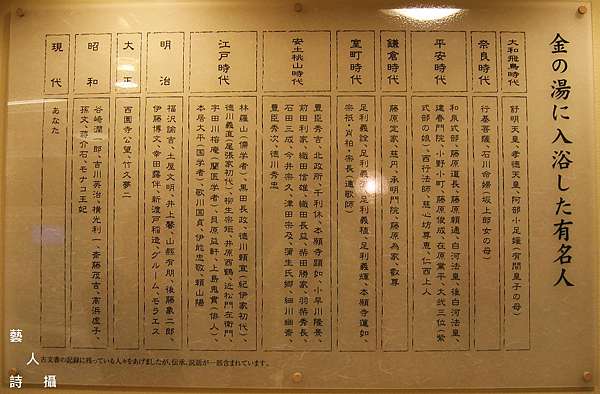 金の湯に入浴した有名人
大和飛鳥時代
舒明天皇、孝徳天皇、阿部小足媛（有間皇子の母）
奈良時代
行基菩薩、石川命婦（坂上郎女の母）
平安時代
和泉式部、藤原道長、藤原頼通、白河法皇、後白河法皇、
建春門院、小野小町、藤原俊成、在原業平、大弐三位（紫
式部の娘）、西行法師、慈心坊尊恵、仁西上人
鎌倉時代
藤原定家、慈円、承明門院、藤原為家、叡尊
室町時代
足利義詮、足利義満、足利義稙、足利義輝、本願寺蓮如
宗祇・肖柏・宗長（連歌師）
安土桃山時代
豊臣秀吉、北政所、千利休、本願寺顕如、小早川隆景、
前田利家、織田信雄、織田長益、柴田勝家、羽柴秀長、
石田三成、今井宗久、津田宗及、蒲生氏郷、細川幽斎、
豊臣秀次、徳川秀忠
江戸時代
林羅山（儒学者）、黒田長政、徳川頼宣（紀伊家初代）、
徳川義直（尾張家初代）、柳生宗矩、井原西鶴、近松門左衛門、
宇田川榕庵（蘭医学者）、貝原益軒、上島鬼貫（俳人）、
本居大平（国学者）、歌川国貞、伊能忠敬、頼山陽
明治
福沢諭吉、土屋文明、井上馨、山縣有朋、後藤象二郎、
伊藤博文、幸田露伴、新渡戸稲造、グルーム、モラエス
大正
西園寺公望、竹久夢二
昭和
谷崎潤一郎、吉川英治、横光利一、斎藤茂吉、高浜虚子、
孫文、蒋介石、モナコ王妃
現代
あなた
古文書の記録に残っている人々をあげましたが、伝承、説話が一部含まれています。
藝人
詩攝